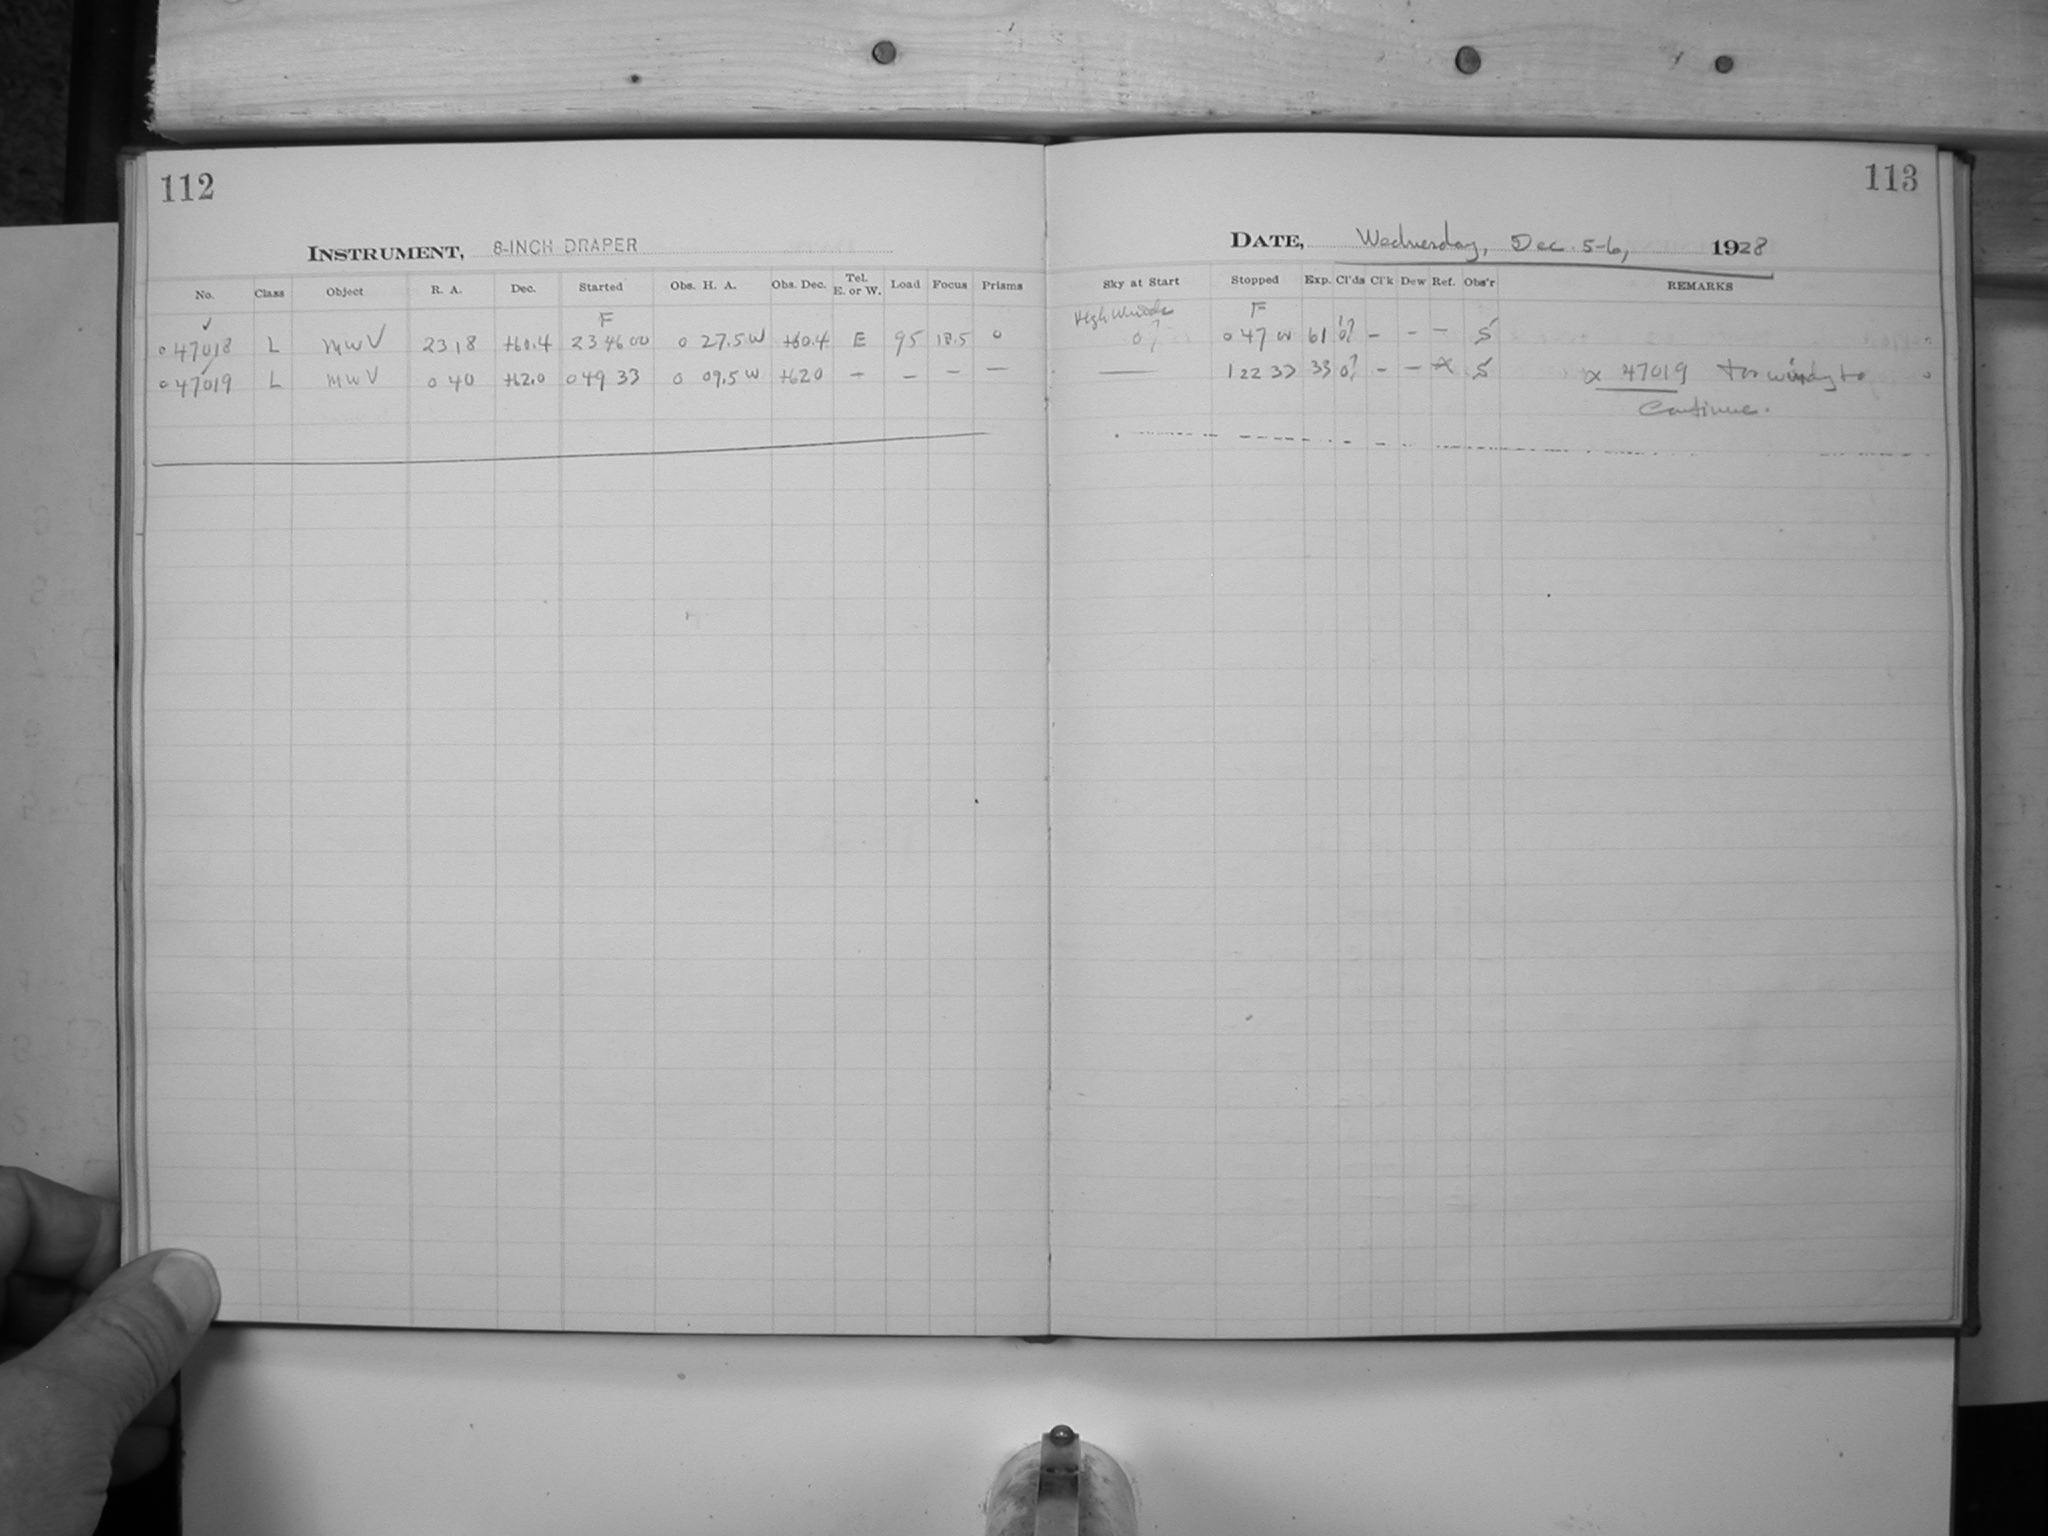 112
INSTRUMENT, 8-INCH DRAPER
No. Class Object R. A. Dec. Started Obs. H. A. Obs. Dec. Tel. E. or W. Load Focus Prisms
F
047018 L MWV 23 18 +60.4 23 46 00 0 27.5 W +60.4 E 95 18.5 0
047019 L MWV 0 40 +62.0 0 49 33 0 09.5 W +62.0 — — — —
113
DATE, Wednesday, Dec. 5-6, 1928
Sky at Start Stopped Exp. Cl'ds Cl'k Dew Ref. Obs'r REMARKS
High F
0? 0 47 00 61 0? — — — S
— 1 22 33 33 0? — — x S x 47019 Too windy to
Continue.